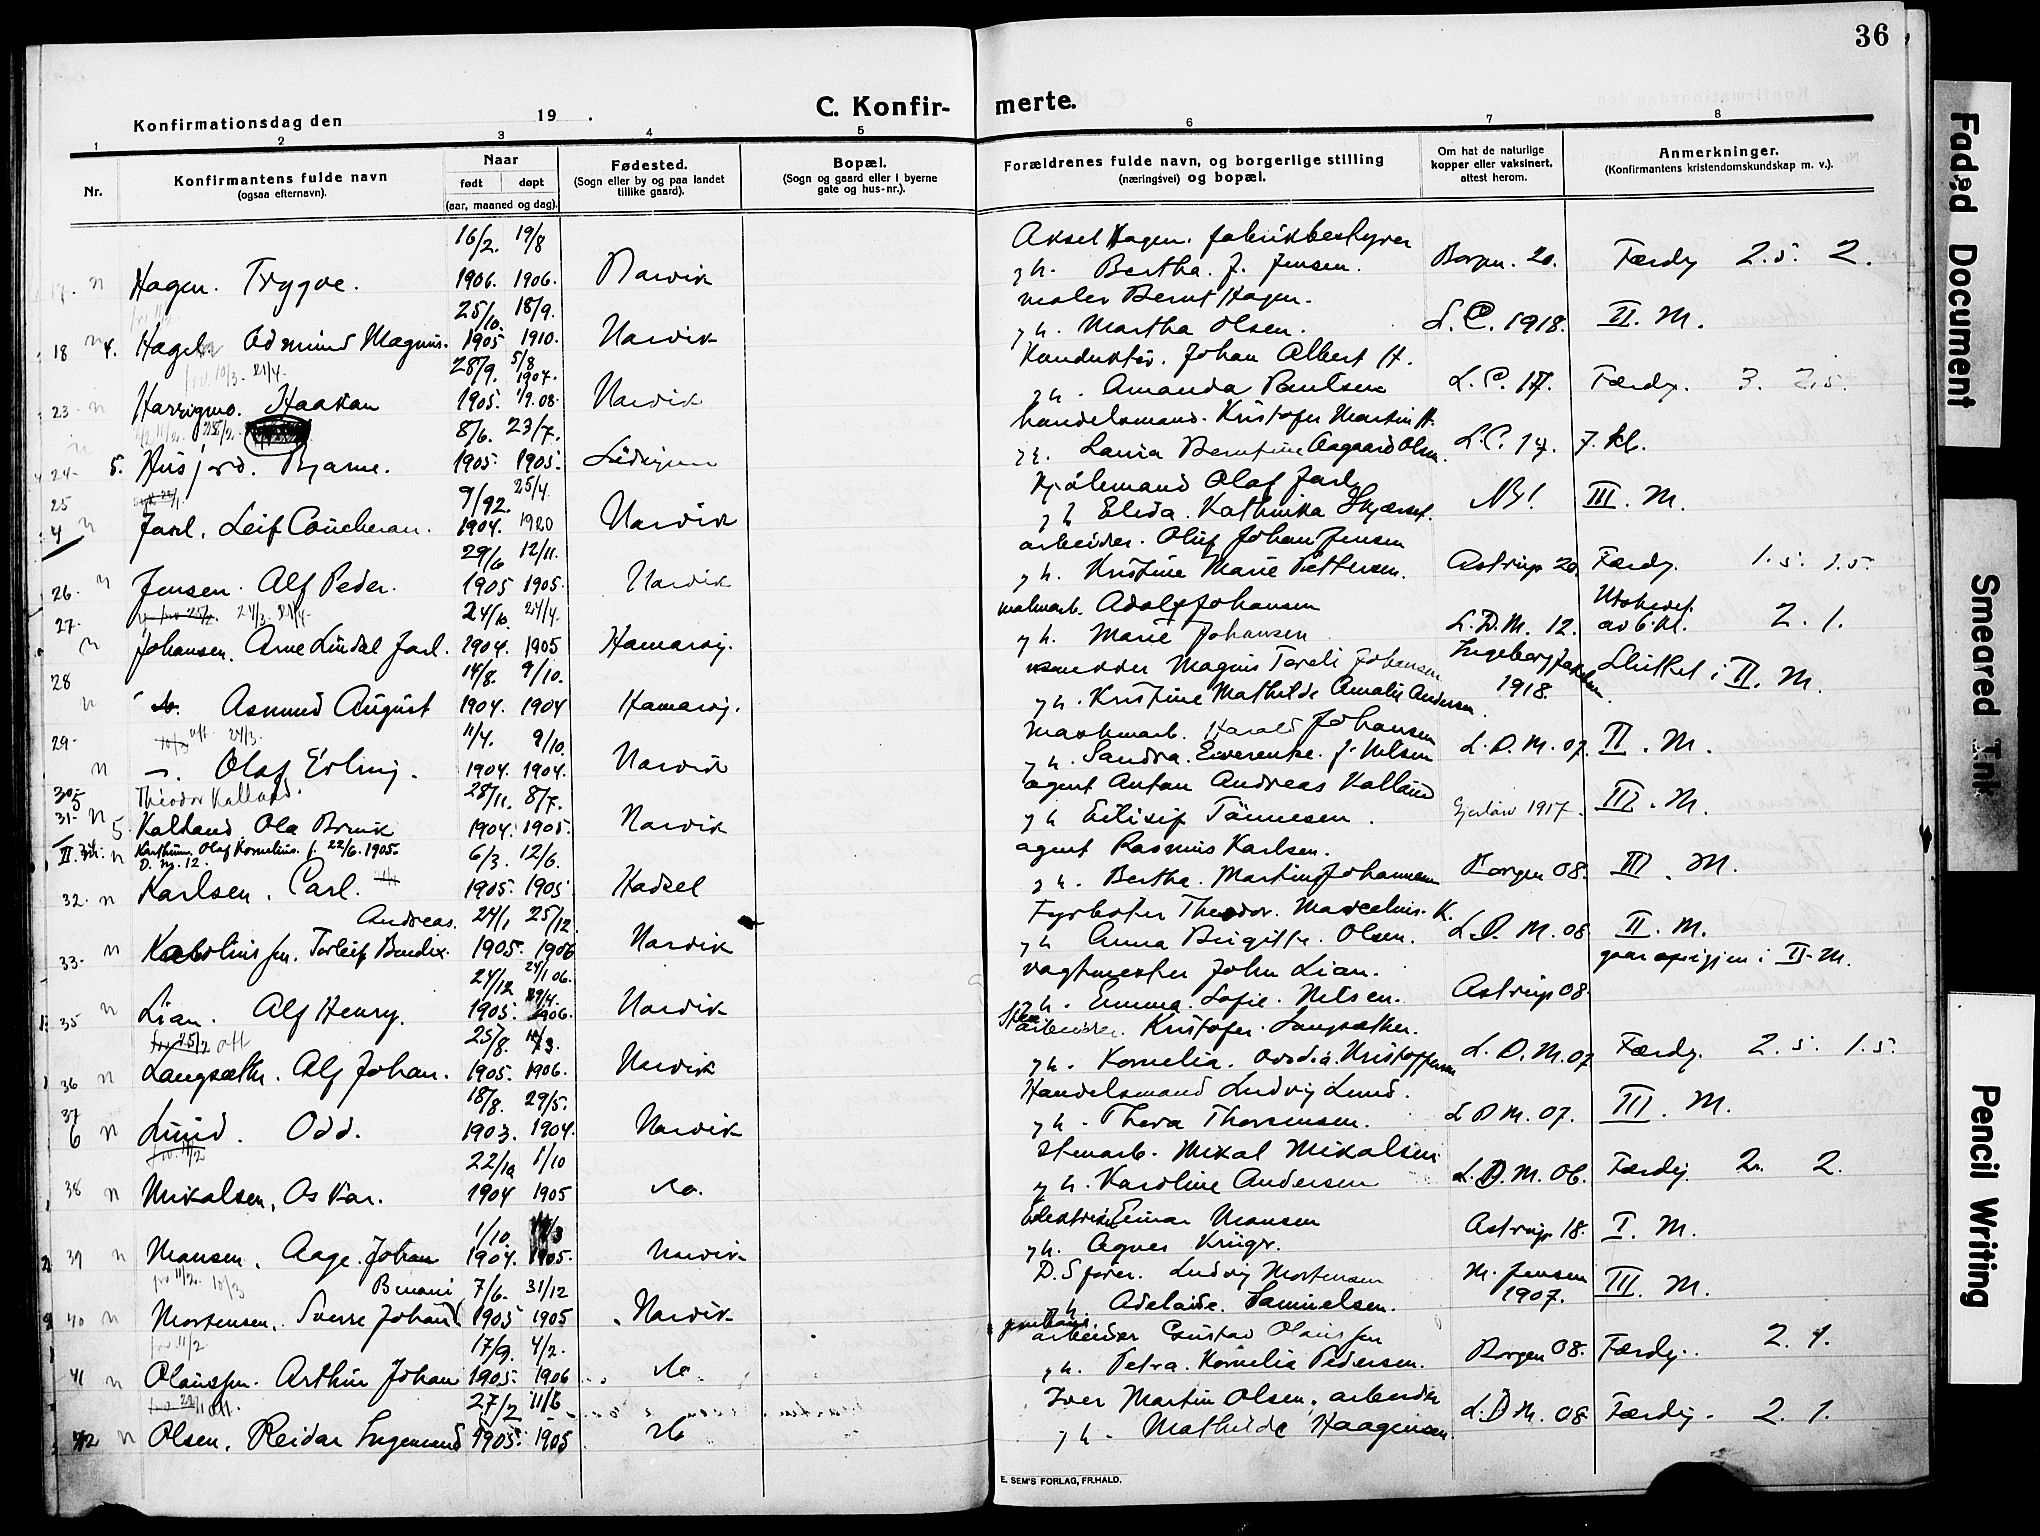 36
C. Konfirmerte.
Konfirmationsdag den 19 .
1 2 3 4 5 6 7 8
Nr.
Konfirmantens fulde navn
(ogsaa efternavn).
Naar
født døpt
(aar, maaned og dag).
Fødested.
(Sogn eller by og paa landet
tillike gaard).
Bopæl.
(Sogn og gaard eller i byerne
gate og hus-nr.).
Forældrenes fulde navn, og borgerlige stilling
(næringsvei) og bopæl.
Om hat de naturlige
kopper eller vaksinert,
attest herom.
Anmerkninger.
(Konfirmantens kristendomskundskap m. v.).
16/2. 19/8 Aksel Hagen. fabrikbestyrer
17. n Hagen. Trygve. 1906. 1906. Narvik g h. Bertha. J. Jensen. Borgen. 20. Færdig 2.5. 2.
25/10. 18/9. maler Bernt Hagen.
18 n 4. Hagen Edmund Magnus. 1905 1910. Narvik g h. Martha Olsen. L. C. 1918. II. M.
10/3. 21/4. 28/9. 5/8 1907. Konduktör. Johan Albert H.
23 n Harrigmo. Haakan 1905. 1/9.08. Narvik g h. Amanda Paulsen L. C. 17. Færdig. 3. 2.5.
8/6. 23/7. handelsmand. Kristofer Martin H.
24 5. Husjord. Bjarne. 1905. 1905. Lödingen Lauia Berntine Aagaard Olsen. L. C. 17. 7. kl.
25 9/92. 25/4. Olaf Jarl
4 n Jarl. Leif Coucheran. 1904. 1920 Narvik g h Elida. Kathinka III. M.
29/6 12/11. arbeider. Oluf Johan Jensen
26. n Jensen. Alf Peder. 1905 1905. Narvik g h. Kristine Marie Pettersen. Astrup 20. Færdig. 1.5. 1.5.
27. 24/3. 21/4. 24/10. 24/4. malmarb. Adolf Johansen Utskrevet
n Johansen. Arne Lindal Jarl. 1904. 1905 Hamarøy. g h. Marie Johansen L. D. M. 12. av 6. kl. 2. 1.
28 14/8. 9/10. Magnus Toreli Johansen Ingeborg Sluttet i II. M.
n do. Asmund August 1904. 1904 Hamarøy. g h. Kristine Mathilde Amalie Andersen. 1918.
29- 10/3 24/3. 11/4. 9/10. Maskinarb. Harald Johansen
n –. Olaf Erling. 1904. 1904. Narvik g h. Sandra. f. Nilsen L. D. M. 07. II. M.
30 5 Theodor Kalland. 28/11. 8/7. agent Anton Andreas Kalland
31- n 5 Kalland Ola Bruvik 1904. 1905. Narvik g h Eilisif Tönnesen. 1917. III. M.
II. n Olaf Kornelius. f. 22/6. 1905. 6/3. 12/6. agent Rasmus Karlsen.
D. M. 12.
32. n Karlsen. Carl. 1905. 1905 Hadsel g h. Bertha. Martine Johannesen Borgen 08. III. M.
Andreas. 24/1 25/12 Fyrbøter Theodor. Marcelius. K. II. M.
33. n Karolinssen. Torleif Bendix. 1905. 1906 Narvik g h Anna Birgitte. Olsen. L. D. M. 08.
24/12 24/1 06. vagtmester John Lian. gaar igjen i II. M.
35 n Lian. Alf Henry. 1905. 29/4. 1906. Narvik g h. Emma. Sofie. Nilsen. Astrup 08.
25/2 att 25/8. arbeider. Kristofer. Langsæther.
36 n Langsæthr. Alf Johan. 1905. 1906. Narvik g h. Kornelia. Ovidia. Kristoffersen L. D. M. 07 Færdig. 2.5. 1.5.
37 18/8. 29/5. Handelsmand Ludvig Lund.
6 n Lund. Odd. 1903. 1904. Narvik g h. Thora Thorsensen. L D M. 07. III. M.
22/10 1/10 Stenarb. Mikal Mikalsen
38 n Mikalsen, Oskar. 1904 1905 do. g h. Karoline Andersen L. D. M. 06. Færdig. 2. 2.
1/10 Einar Monsen
39 n Monsen. Aage. Johan 1904. 1905. Narvik g h. Agnes Krüger. Astrup 18. I. M.
11/2. 10/3 7/6. 31/12 Ludvig Mortensen M. Jensen
40 n Mortensen. Sverre Johan 1905 1905 Narvik g h. Adelaide. Samuelsen. 1907. III. M.
11/2 17/9. 4/2. arbeider Gustav Olaussen
41 n Olaussen. Arthur Johan 1905. 1906 do g h. Petra. Kornelia Pedersen. Borgen 08. Færdig. 2. 1.
27/2 11/6 Iver Martin Olsen, arbeider
42 n Olsen. Reidar Ingemund 1905. 1905 do g h. Mathilde Haagensen. L. D. M. 08. Færdig. 2. 1.
E. SEM'S FORLAG, FR.HALD.
Faded Document
Smeared Ink
Pencil Writing